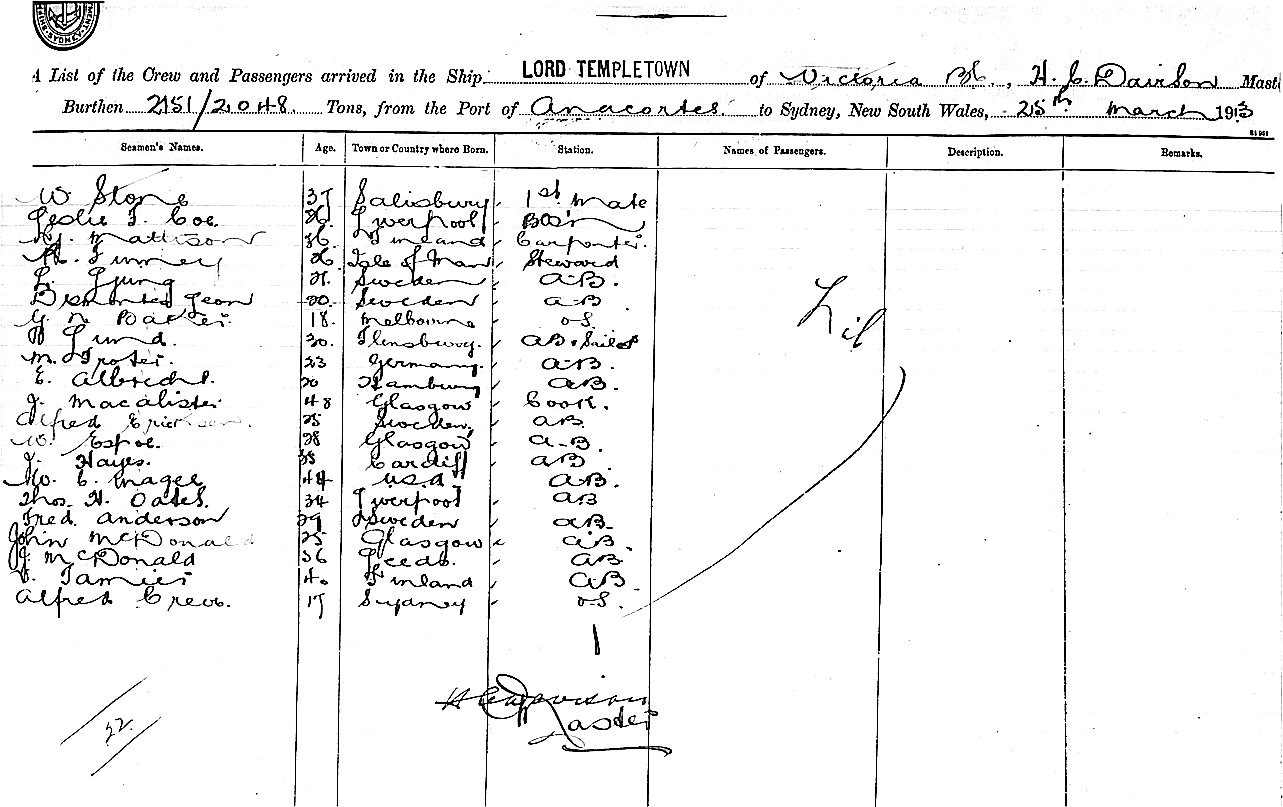 SYDNEY
A List of the Crew and Passengers arrived in the Ship LORD TEMPLETOWN of Victoria BC, H. C. Davison Mast
Burthen 2151/2048 Tons, from the Port of Anacortes to Sydney, New South Wales, 25th March 1913
Seamen's Names. Age. Town or Country where Born. Station. Names of Passengers. Description. Remarks.
W Stone 37 Salisbury 1st Mate
Leslie T. Coe. 26 Liverpool Bosn
Mattison 36 Finland Carpenter.
Finney 26 Isle of Man Steward
L. Ljung 21. Sweden A-B.
Leon 20 Sweden A-B
G. N Baxter. 18. Melbourne O-S.
Lund. 30. Flensburg. AB & Sailor
M. Troter. 23 Germany. A-B.
E. Albrecht. 20 Hamburg AB.
J. Macalister 48 Glasgow Cook.
Alfred Erickson. 25 Sweden. AB.
W. Espoe. 28 Glasgow A-B.
J. Hayes. 35 Cardiff AB
C. Magee 44 U.S.A AB.
Thos. H. Oates. 34 Liverpool AB
Fred. Anderson 29 Sweden AB.
John McDonald 25 Glasgow AB.
J. McDonald 36 Leeds. AB.
Tamies 40 Finland AB.
Alfred Creer. 17 Sydney O-S.
Nil
H C Davison
Master
22.